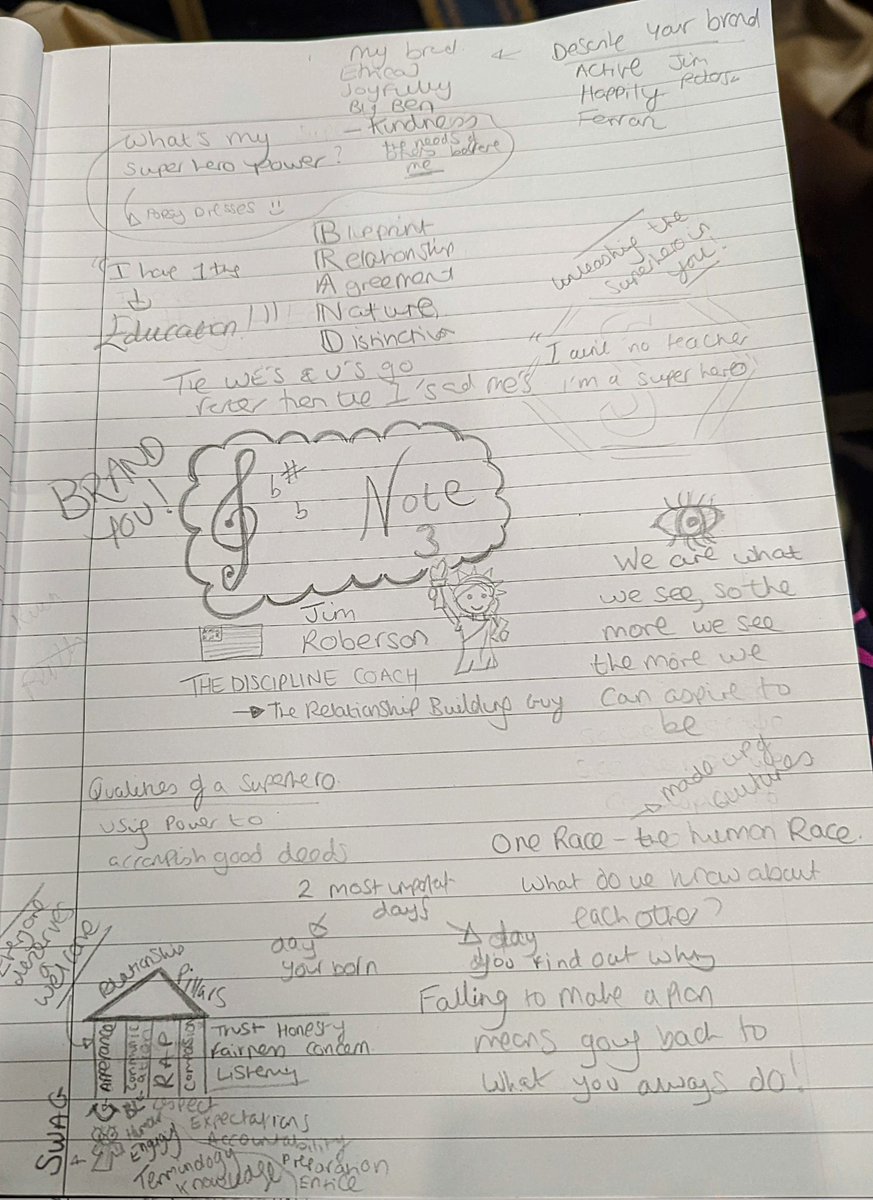 my bred ← Describe your brand
Ethical
Joyfully
By Ben
- Kindness
the needs of
before
me
Active Jim
Happily
Ferran
What's my
super hero power?
↳ Posy Dresses :)
Blueprint
Relationship
Agreement
Nature
Distinction
"I have 1 thg
↓
Education!!!!
unleashing the
superhero is
you!
The WE'S & U'S go
then the I's ad me's
"I aint no teacher
I'm a super hero"
BRAND
YOU!
b#
b
Note
3
Jim
Roberson
THE DISCIPLINE COACH
→ The Relationship Building Guy
We are what
we see, so the
more we see
the more we
can aspire to
be
Qualities of a superhero.
using power to
accompish good deeds
made up of
cultures
One Race - the human Race.
What do we know about
each other?
2 most importat
days
day
your born
day
you find out why
Failing to make a plan
means goig back to
what you always do!
Everyone
deserves
a
welcome
Relationship
Pillars
Apperance
Communication
R-A-P
Compassion
Trust Honesty
Fairness concern
Listening
SWAG
Respect
Expectations
Humor
Accountability
Engage
Preparation
Terminology
Entice
Knowledge